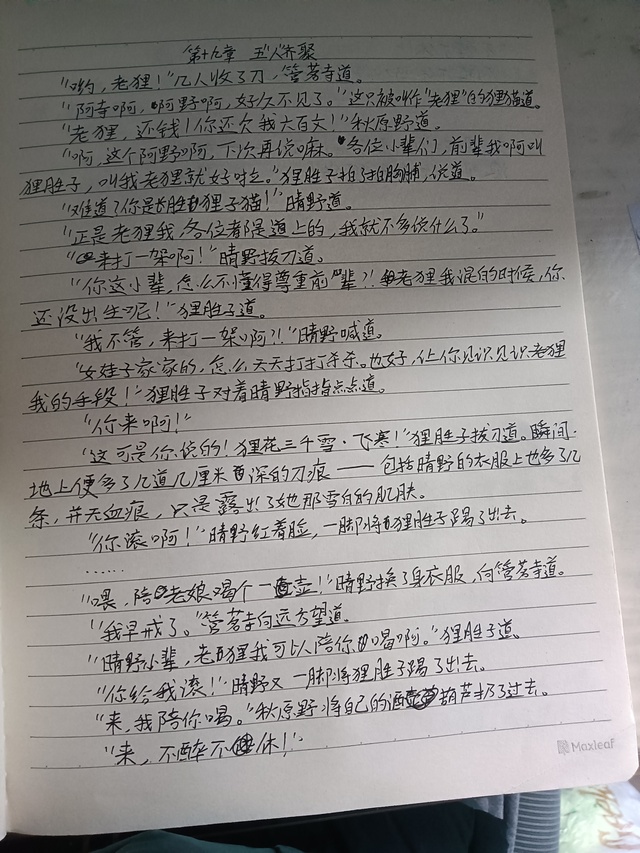 第十九章 五人齐聚
“哟，老狸！”几人收了刀，管茗寺道。
“阿寺啊，阿野啊，好久不见了。”这只被叫作“老狸”的狸猫道。
“老狸，还钱！你还欠我六百文！”秋原野道。
“啊，这个阿野啊，下次再说嘛。各位小辈们，前辈我啊叫
狸胜子，叫我老狸就好啦。”狸胜子拍了拍胸脯，说道。
“难道了你是胜狸子猫！”晴野道。
“正是老狸我，各位都是道上的，我就不多说什么了。”
“来打一架啊！”晴野拔刀道。
“你这小辈，怎么不懂得尊重前辈？！老狸我混的时候，你
还没出生呢！”狸胜子道。
“我不管，来打一架啊？！”晴野喊道。
“女娃子家家的，怎么天天打打杀杀。也好，让你见识见识老狸
我的手段！”狸胜子对着晴野指指点点道。
“你来啊！”
“这可是你说的！狸花三千雪·飞寒！”狸胜子拔刀道。瞬间，
地上便多了几道几厘米深的刀痕——包括晴野的衣服上也多了几
条，并无血痕，只是露出了她那雪白的肌肤。
“你滚啊！”晴野红着脸，一脚将狸胜子踢了出去。
……
“喂，陪老娘喝个一壶！”晴野换了身衣服，向管茗寺道。
“我早戒了。”管茗寺向远方望道。
“晴野小辈，老狸我可以陪你喝啊。”狸胜子道。
“你给我滚！”晴野又一脚将狸胜子踢了出去。
“来，我陪你喝。”秋原野将自己的酒葫芦扔了过去。
“来，不醉不休！”
Maxleaf